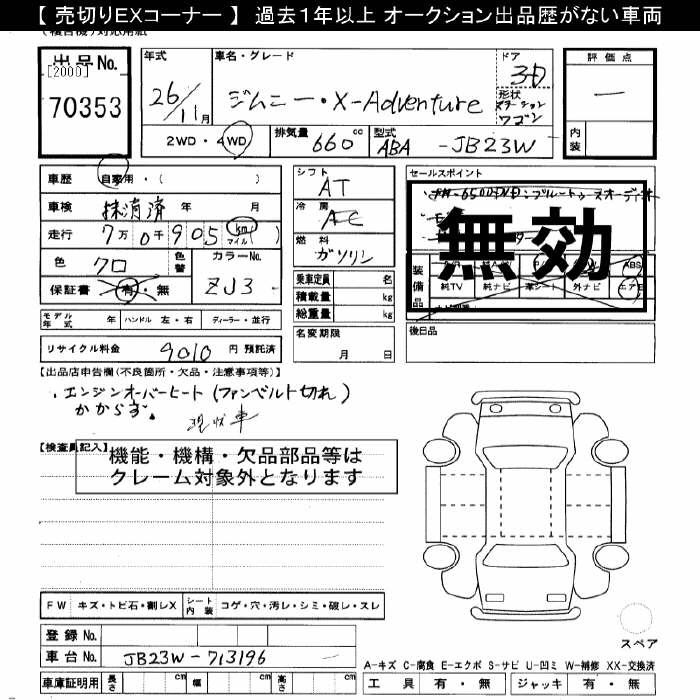 【 売切りEXコーナー 】 過去１年以上 オークション出品歴がない車両
対応用紙
出品 No.
[2000]
70353
年式
26/11月
車名・グレード
ジムニー・X-Adventure
ドア
3D
形状
ステーション
ワゴン
評価点
—
内装
2WD・4WD
排気量
660 cc
型式
ABA - JB23W
車歴 自家用・( )
車検 抹消済 年 月
走行 7万0千905 km マイル ( )
色 クロ
色替
カラーNo.
ZJ3 -
保証書 有・無
シフト
AT
冷房
AC
燃料
ガソリン
乗車定員 名
積載量 kg
総重量 kg
セールスポイント
無効
装備品
ABS
純TV 純ナビ 革シート 外ナビ エアB
モデル年式 年 ハンドル 左・右 ディーラー・並行
名変期限
月 日
後日品
リサイクル料金 9010 円 預託済
【出品店申告欄(不良箇所・欠品・注意事項等)】
・エンジンオーバーヒート(ファンベルト切れ)
かからず。 現状車
【検査員記入】
機能・機構・欠品部品等は
クレーム対象外となります
FW キズ・トビ石・割レX シート内装 コゲ・穴・汚レ・シミ・破レ・スレ
スペア
登録 No.
車台 No. JB23W-713196 —
A-キズ C-腐食 E-エクボ S-サビ U-凹ミ W-補修 XX-交換済
車庫証明用 長さ cm 幅 cm 高さ cm
工具 有・無 ジャッキ 有・無